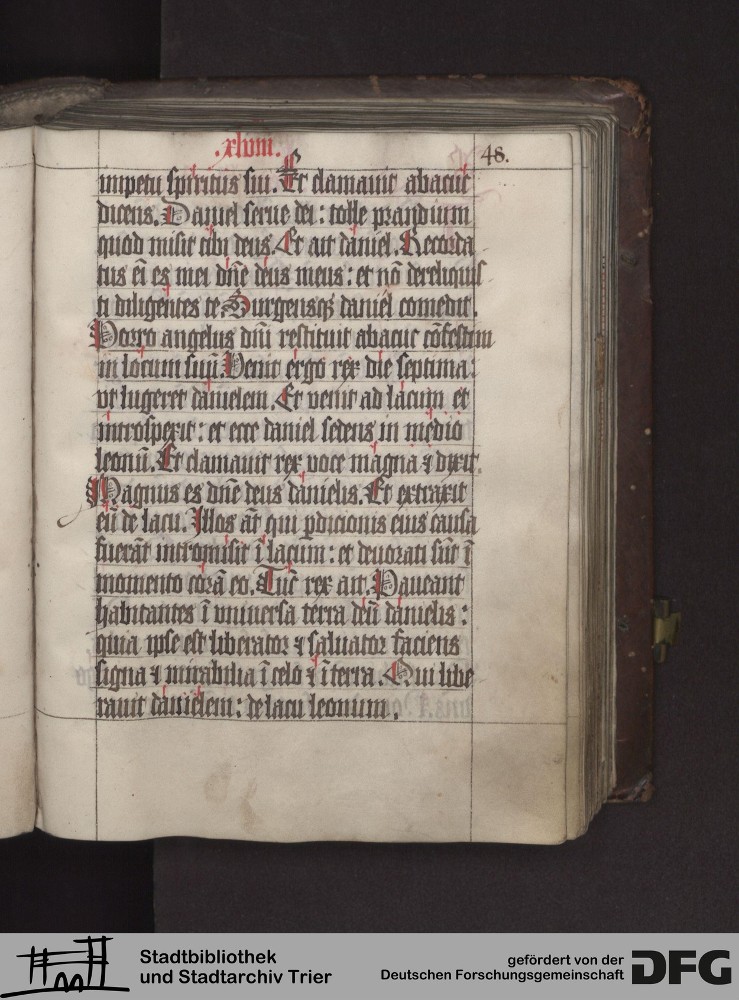 .xlviii.
48.
impetu spiritus sui. Et clamauit abacuc
dicens. Daniel serue dei : tolle prandium
quod misit tibi deus. Et ait daniel. Recorda
tus es mei dn̄e deus meus : et nō dereliquis
ti diligentes te. Surgensqꝫ daniel comedit.
Porro angelus dn̄i restituit abacuc cōfestim
in locum suū. Venit ergo rex die septima :
vt lugeret danielem. Et venit ad lacum et
introspexit : et ecce daniel sedens in medio
leonū. Et clamauit rex voce magna ⁊ dixit.
Magnus es dn̄e deus danielis. Et extraxit
eū de lacu. Illos āt qui ꝑdicionis eius causa
fuerāt intromisit ī lacum : et deuorati sūt ī
momento corā eo. Tūc rex ait. Paueant
habitantes ī vniuersa terra deū danielis :
quia ipse est liberator ⁊ saluator faciens
signa ⁊ mirabilia ī celo ⁊ ī terra. Qui libe
rauit danielem : de lacu leonum.
Stadtbibliothek
und Stadtarchiv Trier
gefördert von der
Deutschen Forschungsgemeinschaft
DFG